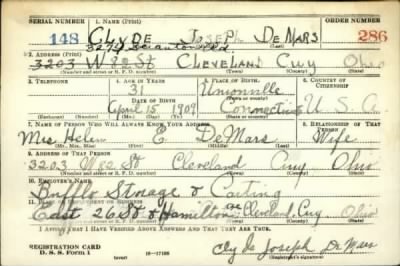 SERIAL NUMBER 1. NAME (Print) ORDER NUMBER
148 CLYDE JOSEPH DEMARS 286
(First) (Middle) (Last)
3274 Scranton Rd.
2. ADDRESS (Print)
3203 W 82 St CLEVELAND Cuy Ohio
(Number and street or R. F. D. number) (Town) (County) (State)
3. TELEPHONE 4. AGE IN YEARS 5. PLACE OF BIRTH 6. COUNTRY OF CITIZENSHIP
31 Unionville
DATE OF BIRTH (Town or county)
April 15, 1909 Connecticut U. S. A.
(Exchange) (No.) (Mo.) (Day) (Yr.) (State or country)
7. NAME OF PERSON WHO WILL ALWAYS KNOW YOUR ADDRESS 8. RELATIONSHIP OF THAT PERSON
Mrs Helen E. DeMars Wife
(Mr., Mrs., Miss) (First) (Middle) (Last)
9. ADDRESS OF THAT PERSON
3203 St Cleveland Cuy Ohio
(Number and street or R. F. D. number) (Town) (County) (State)
10. EMPLOYER'S NAME
Storage &
11. PLACE OF EMPLOYMENT OR BUSINESS
East 26 St & Hamilton Ave Cleveland, Cuy. Ohio
(Number and street or R. F. D. number) (Town) (County) (State)
I AFFIRM THAT I HAVE VERIFIED ABOVE ANSWERS AND THAT THEY ARE TRUE.
REGISTRATION CARD
D. S. S. Form 1 (over) 16-17105
Clyde Joseph DeMars